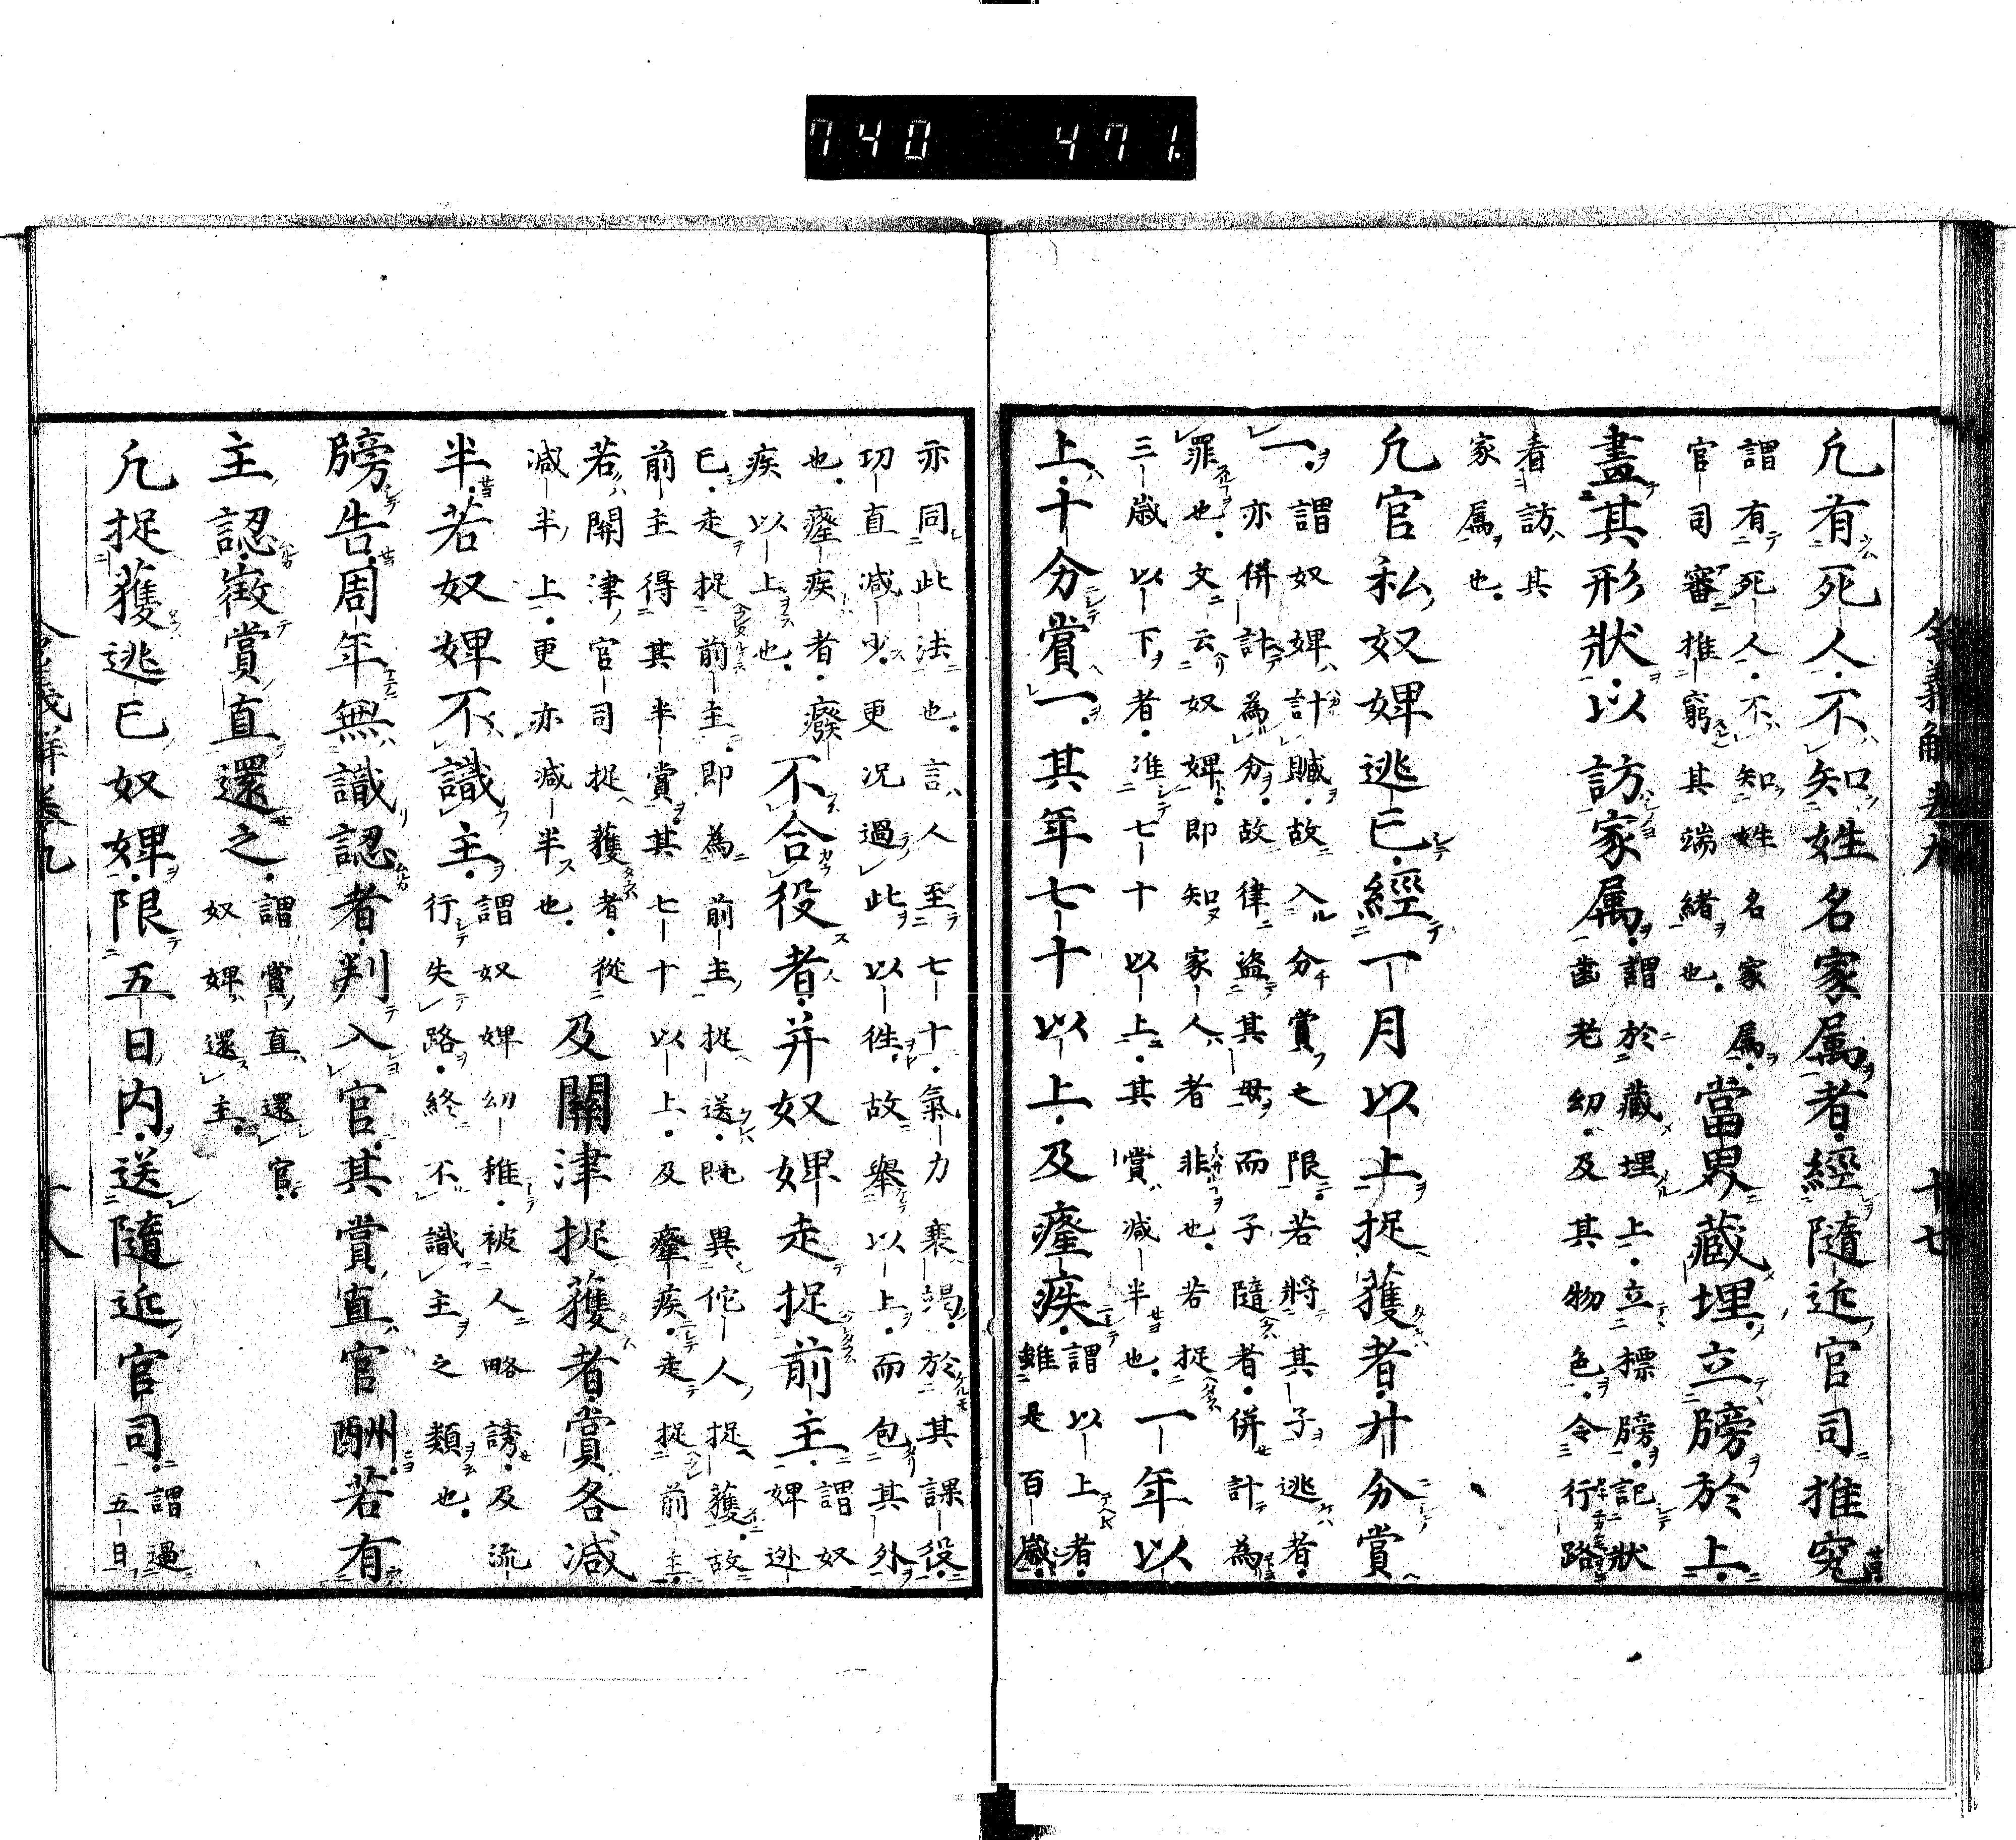 740 471.
令義解卷九 十七
凡有死人不知姓名家属者經隨近官司推究
謂有死人不知姓名家属
官司審推窮其端緒也
當界藏埋立牓於上
盡其形狀以訪家属
謂於藏埋上立標牓記狀
齒老幼及其物色令行路
看訪其
家属也
凡官私奴婢逃亡經一月以上捉獲者廿分賞
一
謂奴婢計贓故入分賞之限若將其子逃者
亦併計為分故律盜其母而子隨者併計為
罪也文云奴婢即知家人者非也若捉
三歲以下者准七十以上其賞減半也
一年以
上十分賞一其年七十以上及癃疾
謂以上者
雖是百歲
亦同此法也言人至七十氣力衰竭於其課役
功直減少更況過此以徃故舉以上而包其外
也癃疾者癈
疾以上也
不合役者并奴婢走捉前主
謂奴
婢逃
亡走捉前主即為前主捉送既異佗人捉獲故
前主得其半賞其七十以上及癃疾走捉前主
若關津官司捉獲者從
減半上更亦減半也
及關津捉獲者賞各減
半若奴婢不識主
謂奴婢幼稚被人略誘及流
行失路終不識主之類也
牓告周年無識認者判入官其賞直官酬若有
主認徴賞直還之
謂賞直還官
奴婢還主
凡捉獲逃亡奴婢限五日内送隨近官司
謂過
五日
令義解卷九 十八